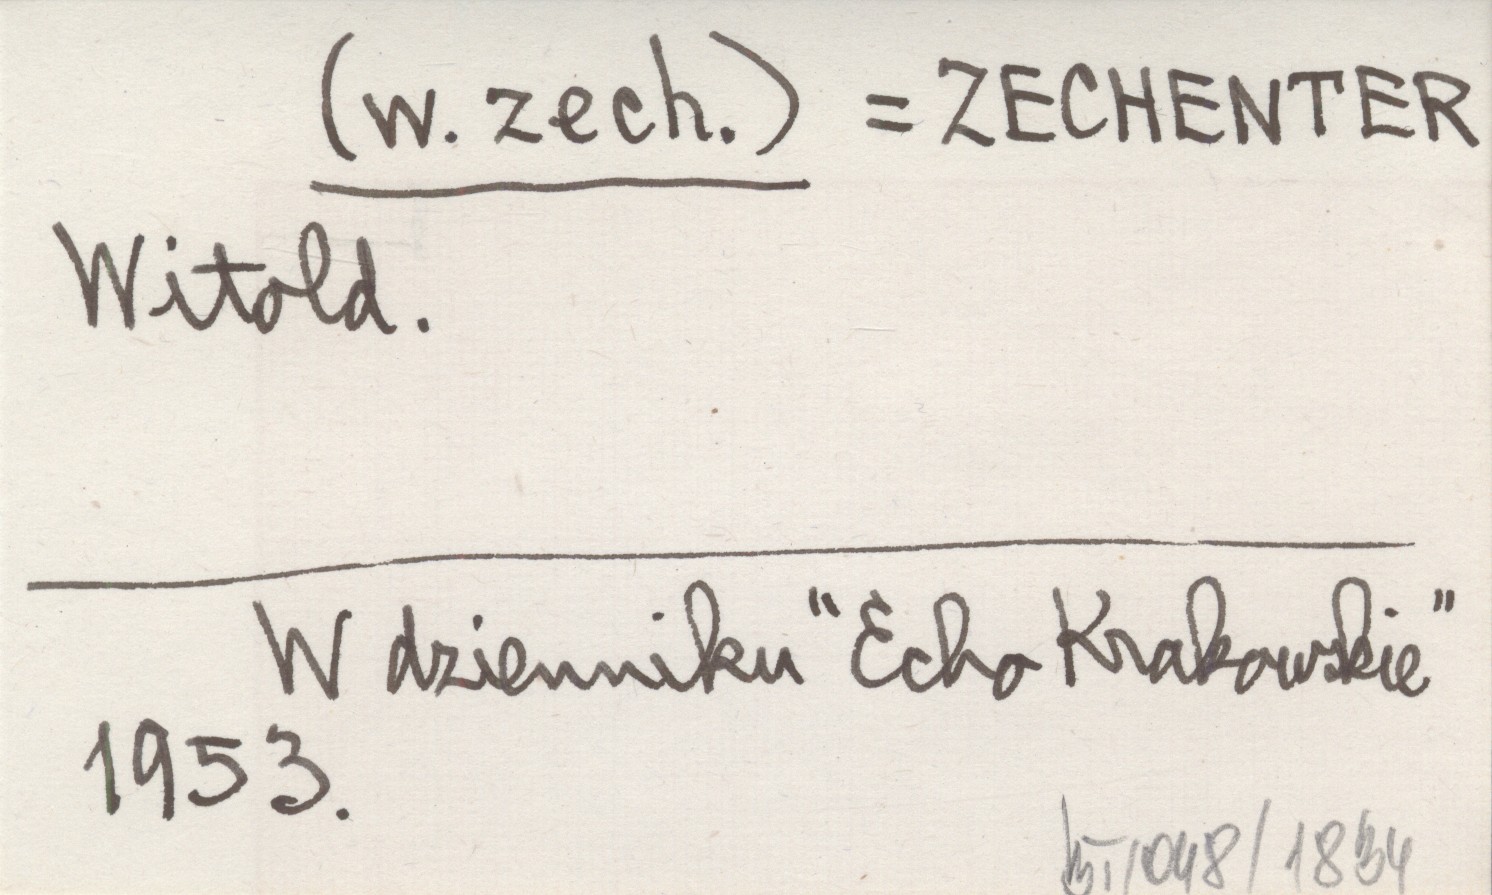 (w. zech.) = ZECHENTER
Witold.
W dzienniku "Echo Krakowskie"
1953.